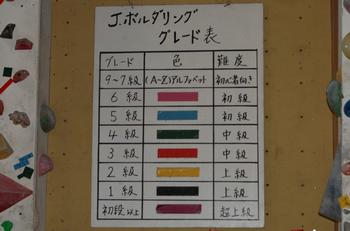 J.ボルダリング
グレード表
グレード 色 難度
9~7級 (A~Z)アルファベット 初心者向き
6級 初級
5級 初級
4級 中級
3級 中級
2級 上級
1級 上級
初段以上 超上級